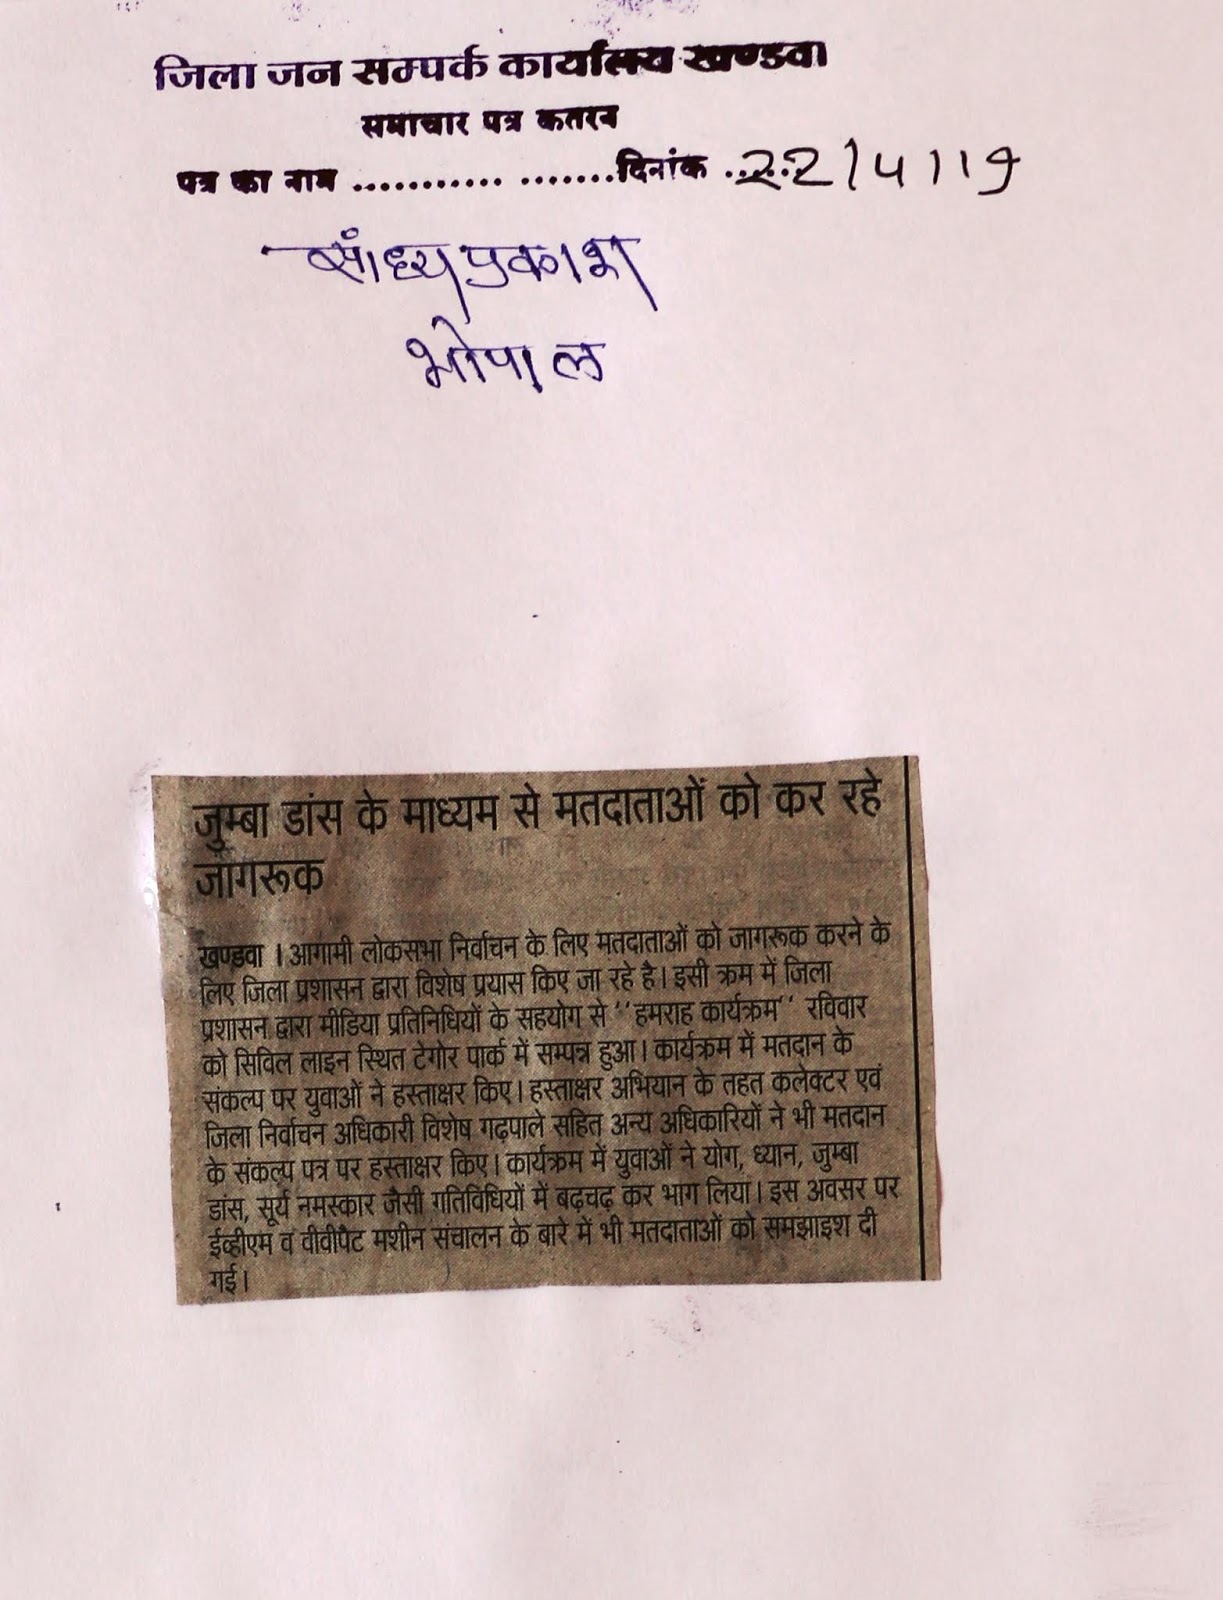 जिला जन सम्पर्क कार्यालय खण्डवा
समाचार पत्र कतरन
पत्र का नाम ........... .......दिनांक .....22/4/19
सांध्यप्रकाश
भोपाल
जुम्बा डांस के माध्यम से मतदाताओं को कर रहे
जागरूक
खण्डवा । आगामी लोकसभा निर्वाचन के लिए मतदाताओं को जागरूक करने के
लिए जिला प्रशासन द्वारा विशेष प्रयास किए जा रहे है। इसी क्रम में जिला
प्रशासन द्वारा मीडिया प्रतिनिधियों के सहयोग से ''हमराह कार्यक्रम'' रविवार
को सिविल लाइन स्थित टेगोर पार्क में सम्पन्न हुआ। कार्यक्रम में मतदान के
संकल्प पर युवाओं ने हस्ताक्षर किए। हस्ताक्षर अभियान के तहत कलेक्टर एवं
जिला निर्वाचन अधिकारी विशेष गढ़पाले सहित अन्य अधिकारियों ने भी मतदान
के संकल्प पत्र पर हस्ताक्षर किए। कार्यक्रम में युवाओं ने योग, ध्यान, जुम्बा
डांस, सूर्य नमस्कार जैसी गतिविधियों में बढ़चढ़ कर भाग लिया। इस अवसर पर
ईव्हीएम व वीवीपैट मशीन संचालन के बारे में भी मतदाताओं को समझाइश दी
गई।